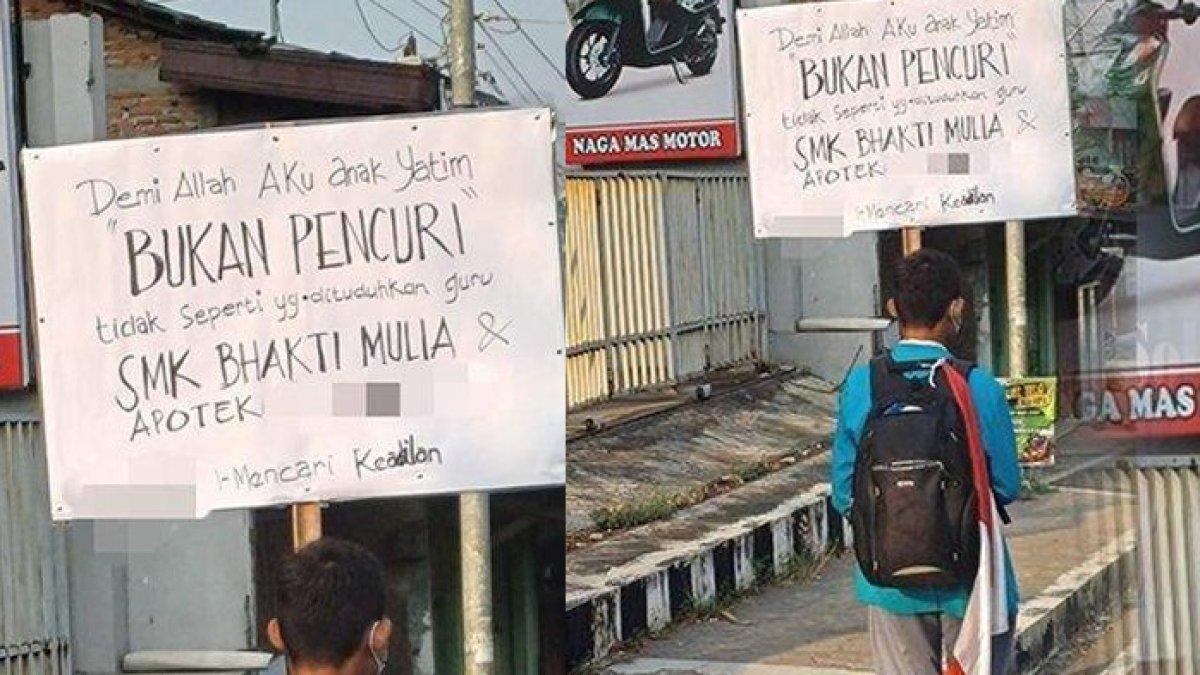 Demi Allah AKu anak Yatim
"BUKAN PENCURI"
tidak seperti yg dituduhkan guru
SMK BHAKTI MULIA &
APOTEK
Mencari Keadilan
NAGA MAS MOTOR
Demi Allah AKu anak Yatim
"BUKAN PENCURI"
tidak seperti yg dituduhkan guru
SMK BHAKTI MULIA &
APOTEK
Mencari Keadilan
GA MAS